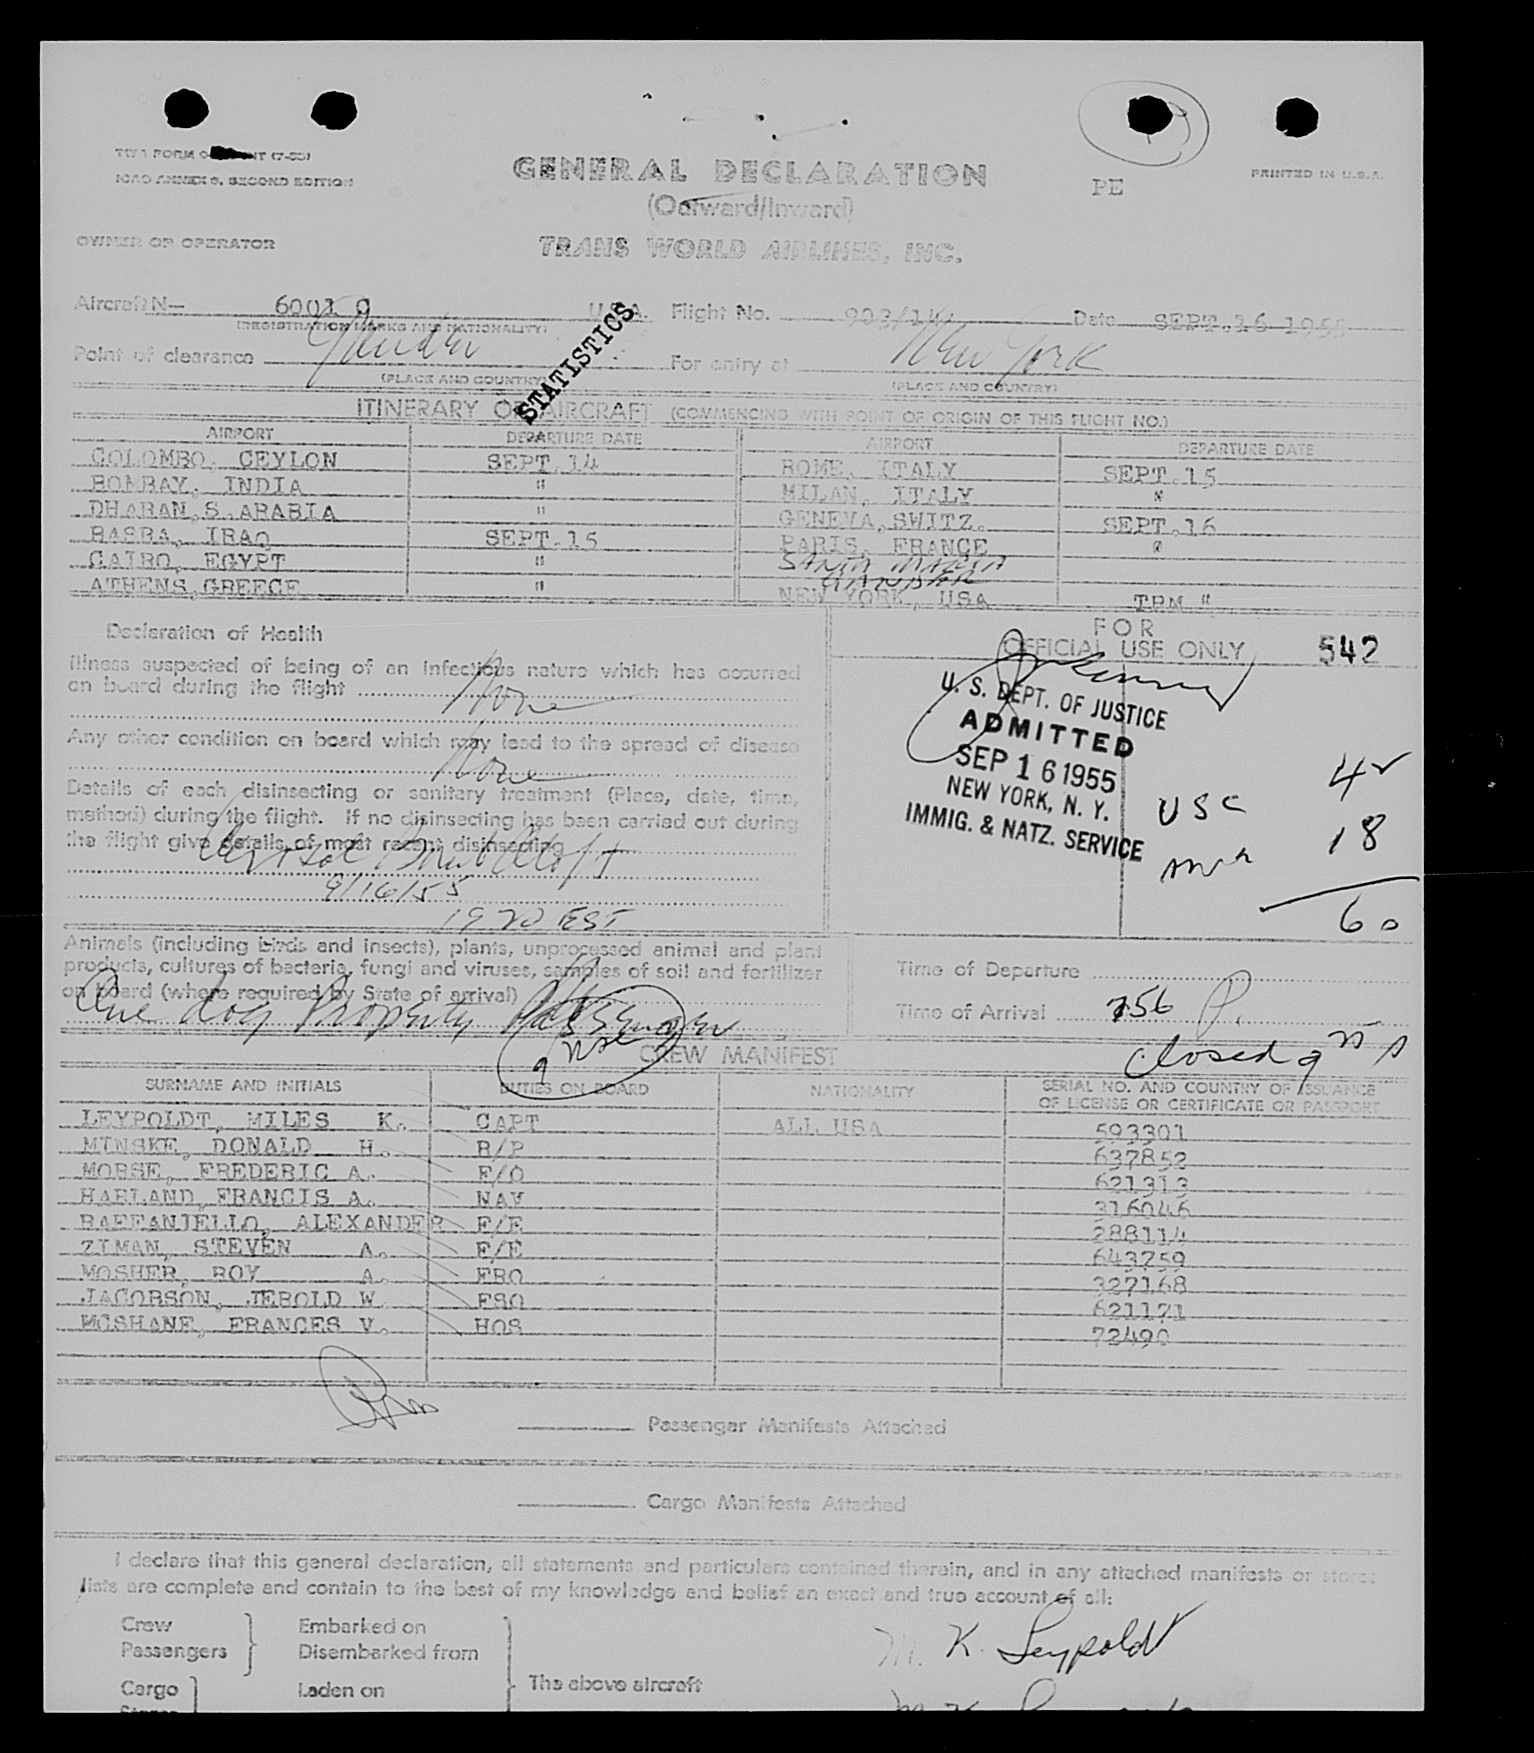 ICAO ANNEX 9, SECOND EDITION
GENERAL DECLARATION
(Outward/Inward)
PE
PRINTED IN U.S.A.
OWNER OR OPERATOR
TRANS WORLD AIRLINES, INC.
Aircraft N— U.S.A. Flight No. Date SEPT.16 1955
(REGISTRATION MARKS AND NATIONALITY)
STATISTICS
Point of clearance Gander For entry at New York
(PLACE AND COUNTRY) (PLACE AND COUNTRY)
ITINERARY OF AIRCRAFT (COMMENCING WITH POINT OF ORIGIN OF THIS FLIGHT NO.)
AIRPORT DEPARTURE DATE AIRPORT DEPARTURE DATE
COLOMBO, CEYLON SEPT.14 ROME, ITALY SEPT.15
BOMBAY, INDIA " MILAN, ITALY "
DHARAN,S.ARABIA " GENEVA,SWITZ. SEPT.16
BASRA, IRAQ SEPT.15 PARIS, FRANCE "
CAIRO, EGYPT " SANTA MARIA
GANDER
ATHENS,GREECE " NEW YORK, USA TRM "
Declaration of Health
Illness suspected of being of an infectious nature which has occurred
on board during the flight None
Any other condition on board which may lead to the spread of disease
None
Details of each disinsecting or sanitary treatment (Place, date, time,
method) during the flight. If no disinsecting has been carried out during
the flight give details of most recent disinsecting
Aerosol Bomb Aloft
9/16/55
1920 EST
FOR
OFFICIAL USE ONLY 542
U. S. DEPT. OF JUSTICE
ADMITTED
SEP 16 1955
NEW YORK, N. Y.
IMMIG. & NATZ. SERVICE
USC 42
18
60
Animals (including birds and insects), plants, unprocessed animal and plant
products, cultures of bacteria, fungi and viruses, samples of soil and fertilizer
on board (where required by State of arrival)
One dog Property Passenger
Time of Departure
Time of Arrival 756 P.
closed 9 25 p
CREW MANIFEST
SURNAME AND INITIALS DUTIES ON BOARD NATIONALITY SERIAL NO. AND COUNTRY OF ISSUANCE
OF LICENSE OR CERTIFICATE OR PASSPORT
LEYPOLDT, MILES K. CAPT ALL USA 593301
MINSKE, DONALD H. R/P 637852
MORSE, FREDERIC A. F/O 621313
HARLAND, FRANCIS A. NAV 316046
RAFFANIELLO, ALEXANDER F/E 288114
ZIMAN, STEVEN A. F/E 643759
MOSHER, ROY A. FRO 327168
JACOBSON, JEROLD W. FSO 621171
MCSHANE, FRANCES V. HOS 72490
Passenger Manifests Attached
Cargo Manifests Attached
I declare that this general declaration, all statements and particulars contained therein, and in any attached manifests or stores
lists are complete and contain to the best of my knowledge and belief an exact and true account of all:
Crew Embarked on
Passengers Disembarked from
M. K. Leypoldt
Cargo Laden on The above aircraft